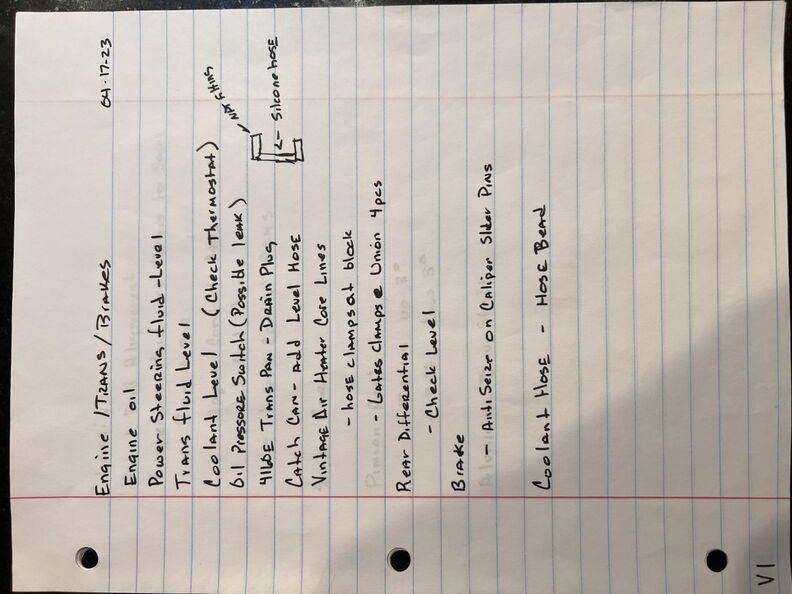 04-17-23
Engine / Trans / Brakes
Engine oil
Power Steering fluid - Level
Trans fluid Level
Coolant Level (Check Thermostat)
Oil Pressore Switch (Possible leak)
NPT fittings
4L60E Trans Pan - Drain Plug
<- Silicone hose
Catch Can - Add Level Hose
Vintage Air Heater Core Lines
- hose clamps at block
- Gates Clamps @ Union 4pcs
Rear Differential
- Check Level
Brake
- Anti Seize on Caliper Slider Pins
Coolant Hose - Hose Bead
V1